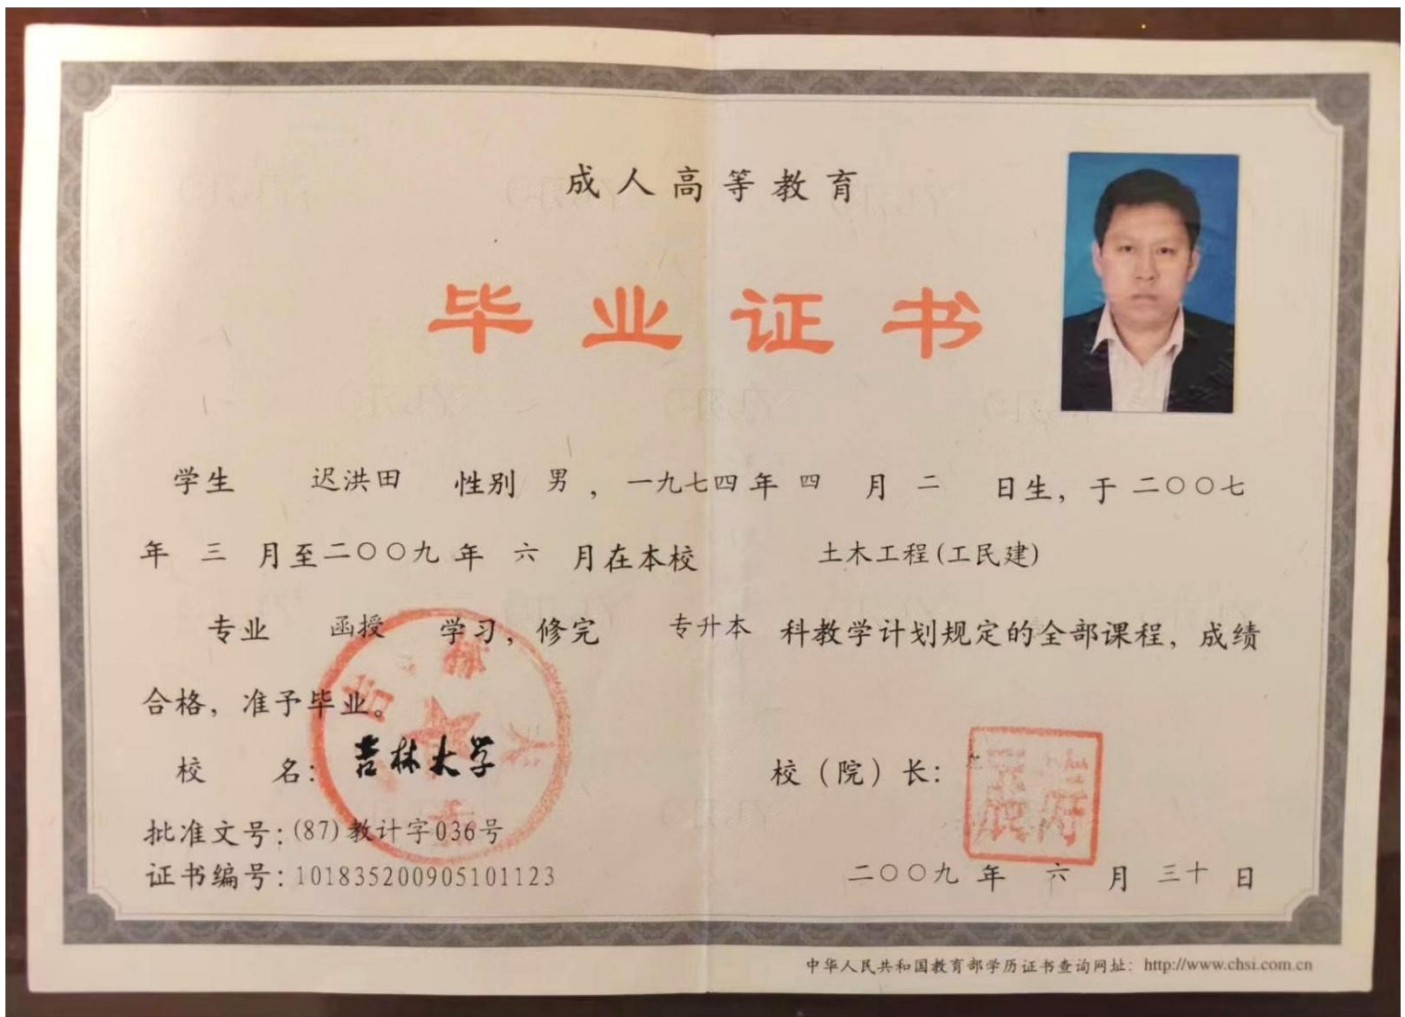 成人高等教育
毕业证书
学生 迟洪田 性别 男，一九七四年 四 月 二 日生，于 二〇〇七
年 三 月至二〇〇九 年 六 月在本校 土木工程(工民建)
专业 函授 学习，修完 专升本 科教学计划规定的全部课程，成绩
合格，准予毕业。
校 名：吉林大学 校（院）长：
批准文号：(87)教计字036号
证书编号：101835200905101123 二〇〇九 年 六 月 三十 日
中华人民共和国教育部学历证书查询网址：http://www.chsi.com.cn